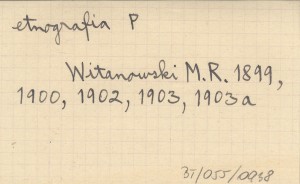 etnografia P
Witanowski M.R. 1899,
1900, 1902, 1903, 1903a
BT/055/0938